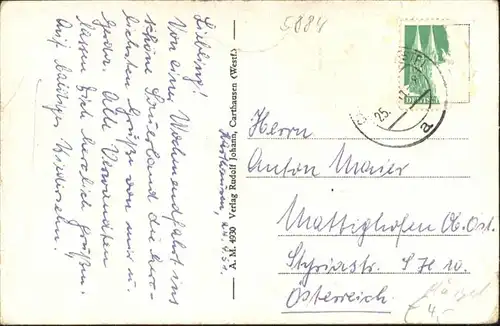 5884
Liebling!
Von einer Wochenendfahrt ins
schöne Sauerland die herz-
lichsten Grüße von mir u.
Gerda. Alle Verwandten
lassen Dich herzlich grüßen.
Auf baldiges Wiedersehn!
A. M. 4930 Verlag Rudolf Johann, Carthausen (Westf.)
Herrn
Anton Maier
Mattighofen Ob. Öst.
Styriastr. S H 10.
Österreich.
25.
a
4,-